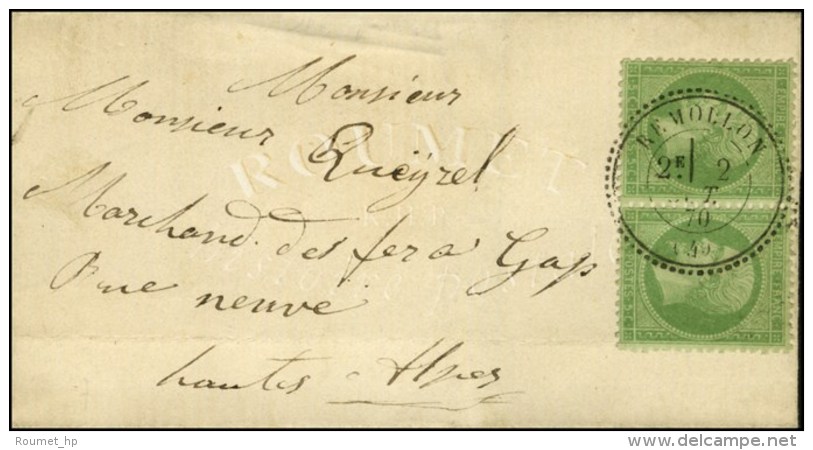 Monsieur
Monsieur Queÿrel
Marchand des fer a Gap
Rue neuve
hautes Alpes
REMOLLON
2E 2
70
(4)
ROUMET
Roumet_hp
delcampe.net